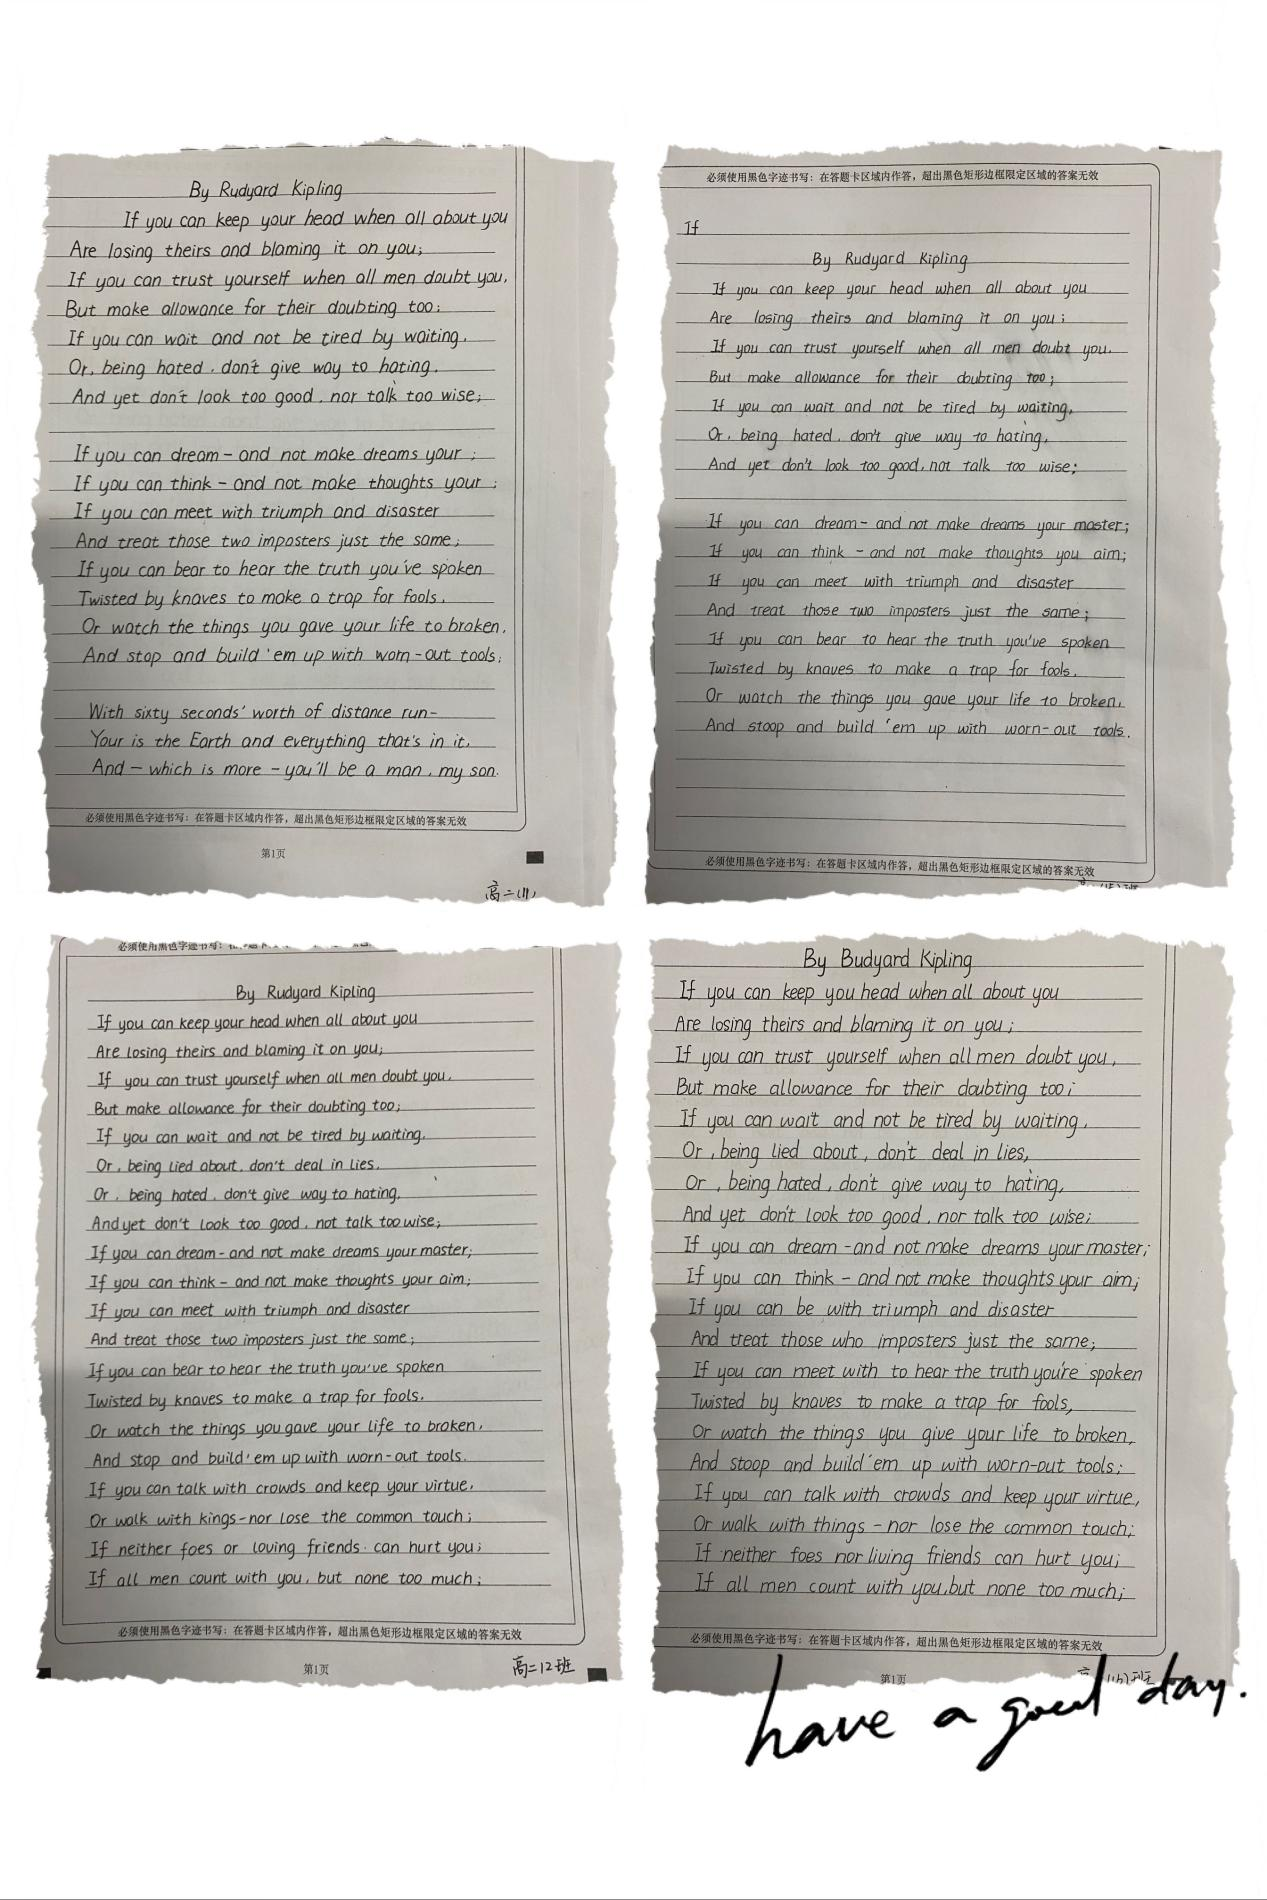 By Rudyard Kipling
If you can keep your head when all about you
Are losing theirs and blaming it on you;
If you can trust yourself when all men doubt you,
But make allowance for their doubting too;
If you can wait and not be tired by waiting,
Or, being hated, don't give way to hating,
And yet don't look too good, nor talk too wise;
If you can dream - and not make dreams your ;
If you can think - and not make thoughts your ;
If you can meet with triumph and disaster
And treat those two imposters just the same;
If you can bear to hear the truth you've spoken
Twisted by knaves to make a trap for fools,
Or watch the things you gave your life to broken,
And stop and build 'em up with worn-out tools;
With sixty seconds' worth of distance run-
Your is the Earth and everything that's in it,
And - which is more - you'll be a man, my son.
必须使用黑色字迹书写：在答题卡区域内作答，超出黑色矩形边框限定区域的答案无效
第1页
高二(11)
必须使用黑色字迹书写：在答题卡区域内作答，超出黑色矩形边框限定区域的答案无效
If
By Rudyard Kipling
If you can keep your head when all about you
Are losing theirs and blaming it on you;
If you can trust yourself when all men doubt you,
But make allowance for their doubting too;
If you can wait and not be tired by waiting,
Or, being hated, don't give way to hating,
And yet don't look too good, not talk too wise;
If you can dream - and not make dreams your master;
If you can think - and not make thoughts you aim;
If you can meet with triumph and disaster
And treat those two imposters just the same;
If you can bear to hear the truth you've spoken
Twisted by knaves to make a trap for fools,
Or watch the things you gave your life to broken,
And stoop and build 'em up with worn-out tools.
必须使用黑色字迹书写：在答题卡区域内作答，超出黑色矩形边框限定区域的答案无效
必须使用黑色字迹书写：
By Rudyard Kipling
If you can keep your head when all about you
Are losing theirs and blaming it on you;
If you can trust yourself when all men doubt you,
But make allowance for their doubting too;
If you can wait and not be tired by waiting,
Or, being lied about, don't deal in lies,
Or, being hated, don't give way to hating,
And yet don't look too good, not talk too wise;
If you can dream - and not make dreams your master;
If you can think - and not make thoughts your aim;
If you can meet with triumph and disaster
And treat those two imposters just the same;
If you can bear to hear the truth you've spoken
Twisted by knaves to make a trap for fools,
Or watch the things you gave your life to broken,
And stop and build 'em up with worn-out tools.
If you can talk with crowds and keep your virtue,
Or walk with kings - nor lose the common touch;
If neither foes or loving friends can hurt you;
If all men count with you, but none too much;
必须使用黑色字迹书写：在答题卡区域内作答，超出黑色矩形边框限定区域的答案无效
第1页
高二12班
By Budyard Kipling
If you can keep you head when all about you
Are losing theirs and blaming it on you;
If you can trust yourself when all men doubt you,
But make allowance for their doubting too;
If you can wait and not be tired by waiting,
Or, being lied about, don't deal in lies,
Or, being hated, don't give way to hating,
And yet don't look too good, nor talk too wise;
If you can dream - and not make dreams your master;
If you can think - and not make thoughts your aim;
If you can be with triumph and disaster
And treat those who imposters just the same;
If you can meet with to hear the truth you're spoken
Twisted by knaves to make a trap for fools,
Or watch the things you give your life to broken,
And stoop and build 'em up with worn-out tools;
If you can talk with crowds and keep your virtue,
Or walk with things - nor lose the common touch;
If neither foes nor living friends can hurt you;
If all men count with you, but none too much;
必须使用黑色字迹书写：在答题卡区域内作答，超出黑色矩形边框限定区域的答案无效
第1页
have a good day.